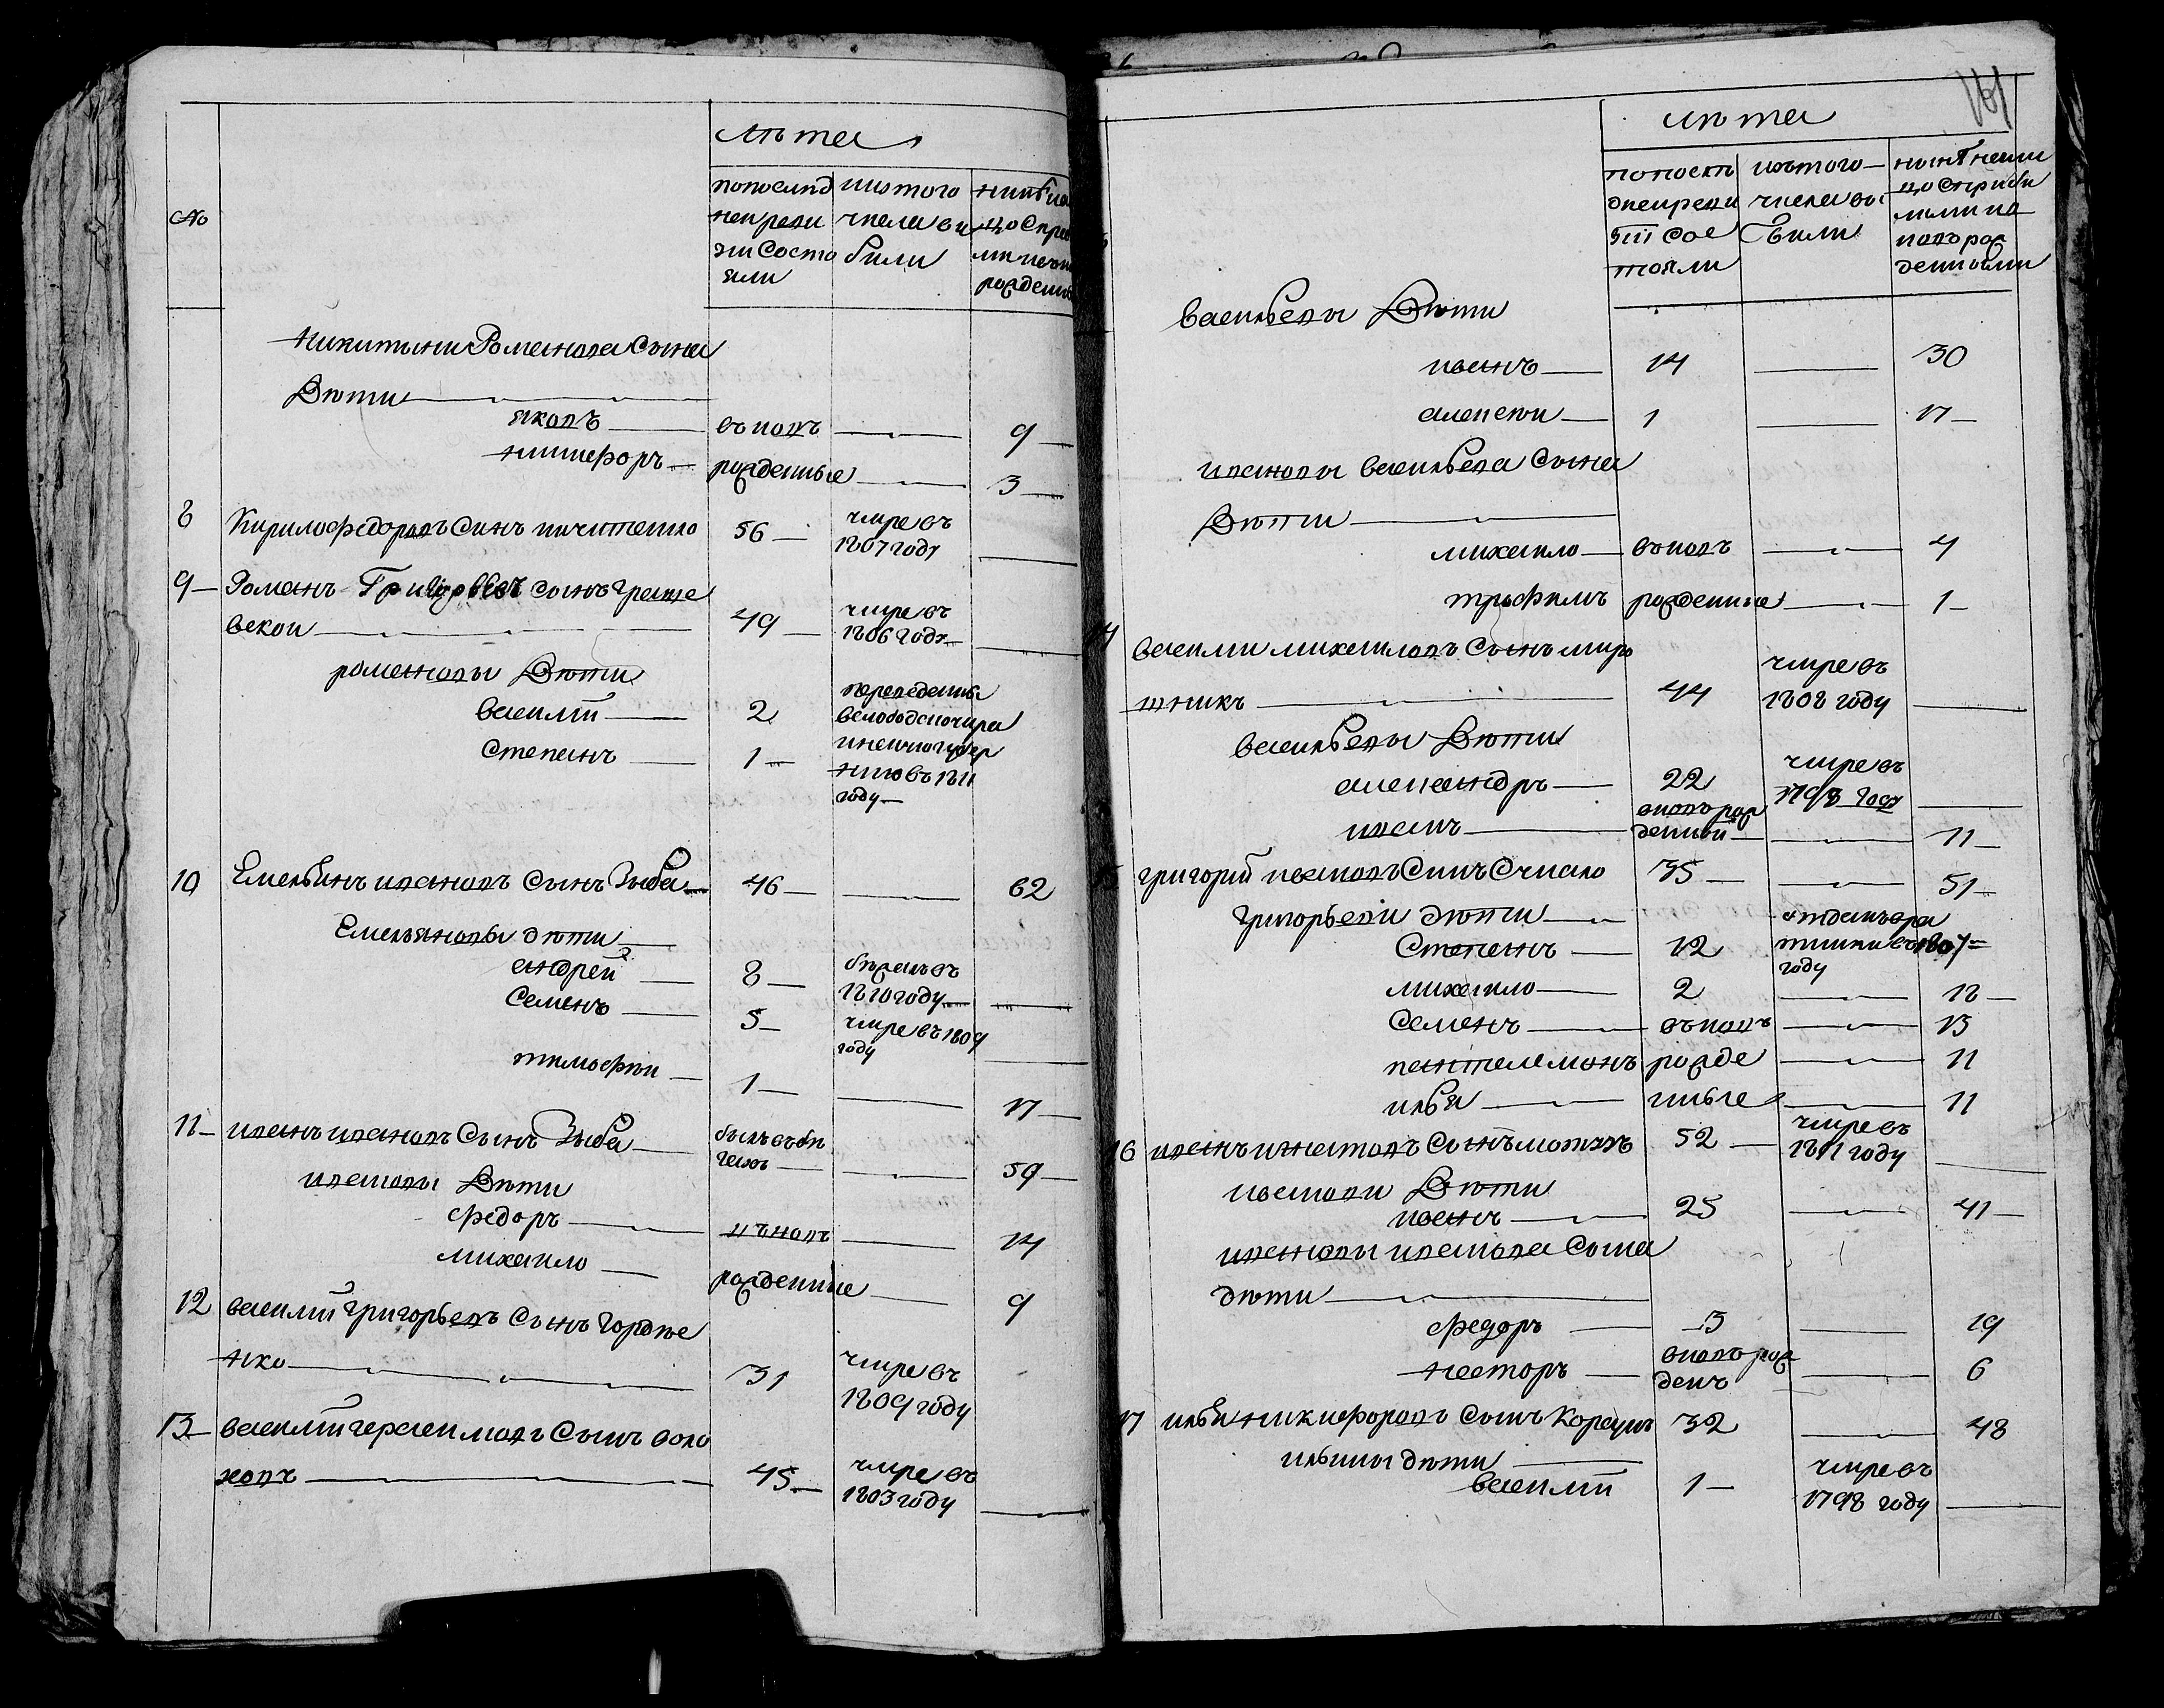 лѣта
№
попослѣд
ней реви
зіи состо
яли
исътого
числа вы
были
рожденны
Никитины Романова сына
Дѣти
яковъ вновъ 9
никифоръ рожденные 3
8 Кирило федоровъ сынъ 56 умре въ
1807 году
9 Романъ Григорьевъ сынъ
вскои 49 умре въ
1806 году
романовы Дѣти
василій 2 переведены
степанъ 1
въ 1811
году
10 Емельянъ ивановъ сынъ Зыба 46 62
Емельяновы дѣти
андрей 8 бежалъ въ
1810 году
семенъ 5 умре въ 1809
году
тимофѣи 1 17
11 иванъ ивановъ сынъ Зыба былъ въ бѣ
гахъ 59
ивановы Дѣти
федоръ вновъ 14
михаило рожденные 9
12 василій григорьевъ сынъ гордѣе
нко 31 умре въ
1809 году
13 василій герасимовъ сынъ воло
ховъ 45 умре въ
1803 году
161
лѣта
попослѣ
днейреви
зіи сос
тояли
исътого
числа вы
были
новорож
денными
васильевы Дѣти
иванъ 14 30
алексѣи 1 17
ивановы васильева сына
Дѣти
михаило вновъ 4
трофимъ рожденные 1
14 василии михаиловъ сынъ миро
шникъ 44 умре въ
1808 году
васильевы Дѣти
александръ 22 умре въ
1798 году
иванъ вновъ рож
денной 11
григорій ивановъ сынъ 35 51
григорьевы дѣти
степанъ 12 отданъ в ре
круты въ 1807
году
михаило 2 18
семенъ вновъ 13
пантелемонъ рожде 11
илья нные 11
16 иванъ сынъ 52 умре въ
1811 году
ивановы Дѣти
иванъ 25 41
ивановы иванова сына
дѣти
федоръ 3 19
несторъ вновъ рож
денъ 6
17 илья никифоровъ сынъ Корсунъ 32 48
ильины дѣти
василій 1 умре въ
1798 году